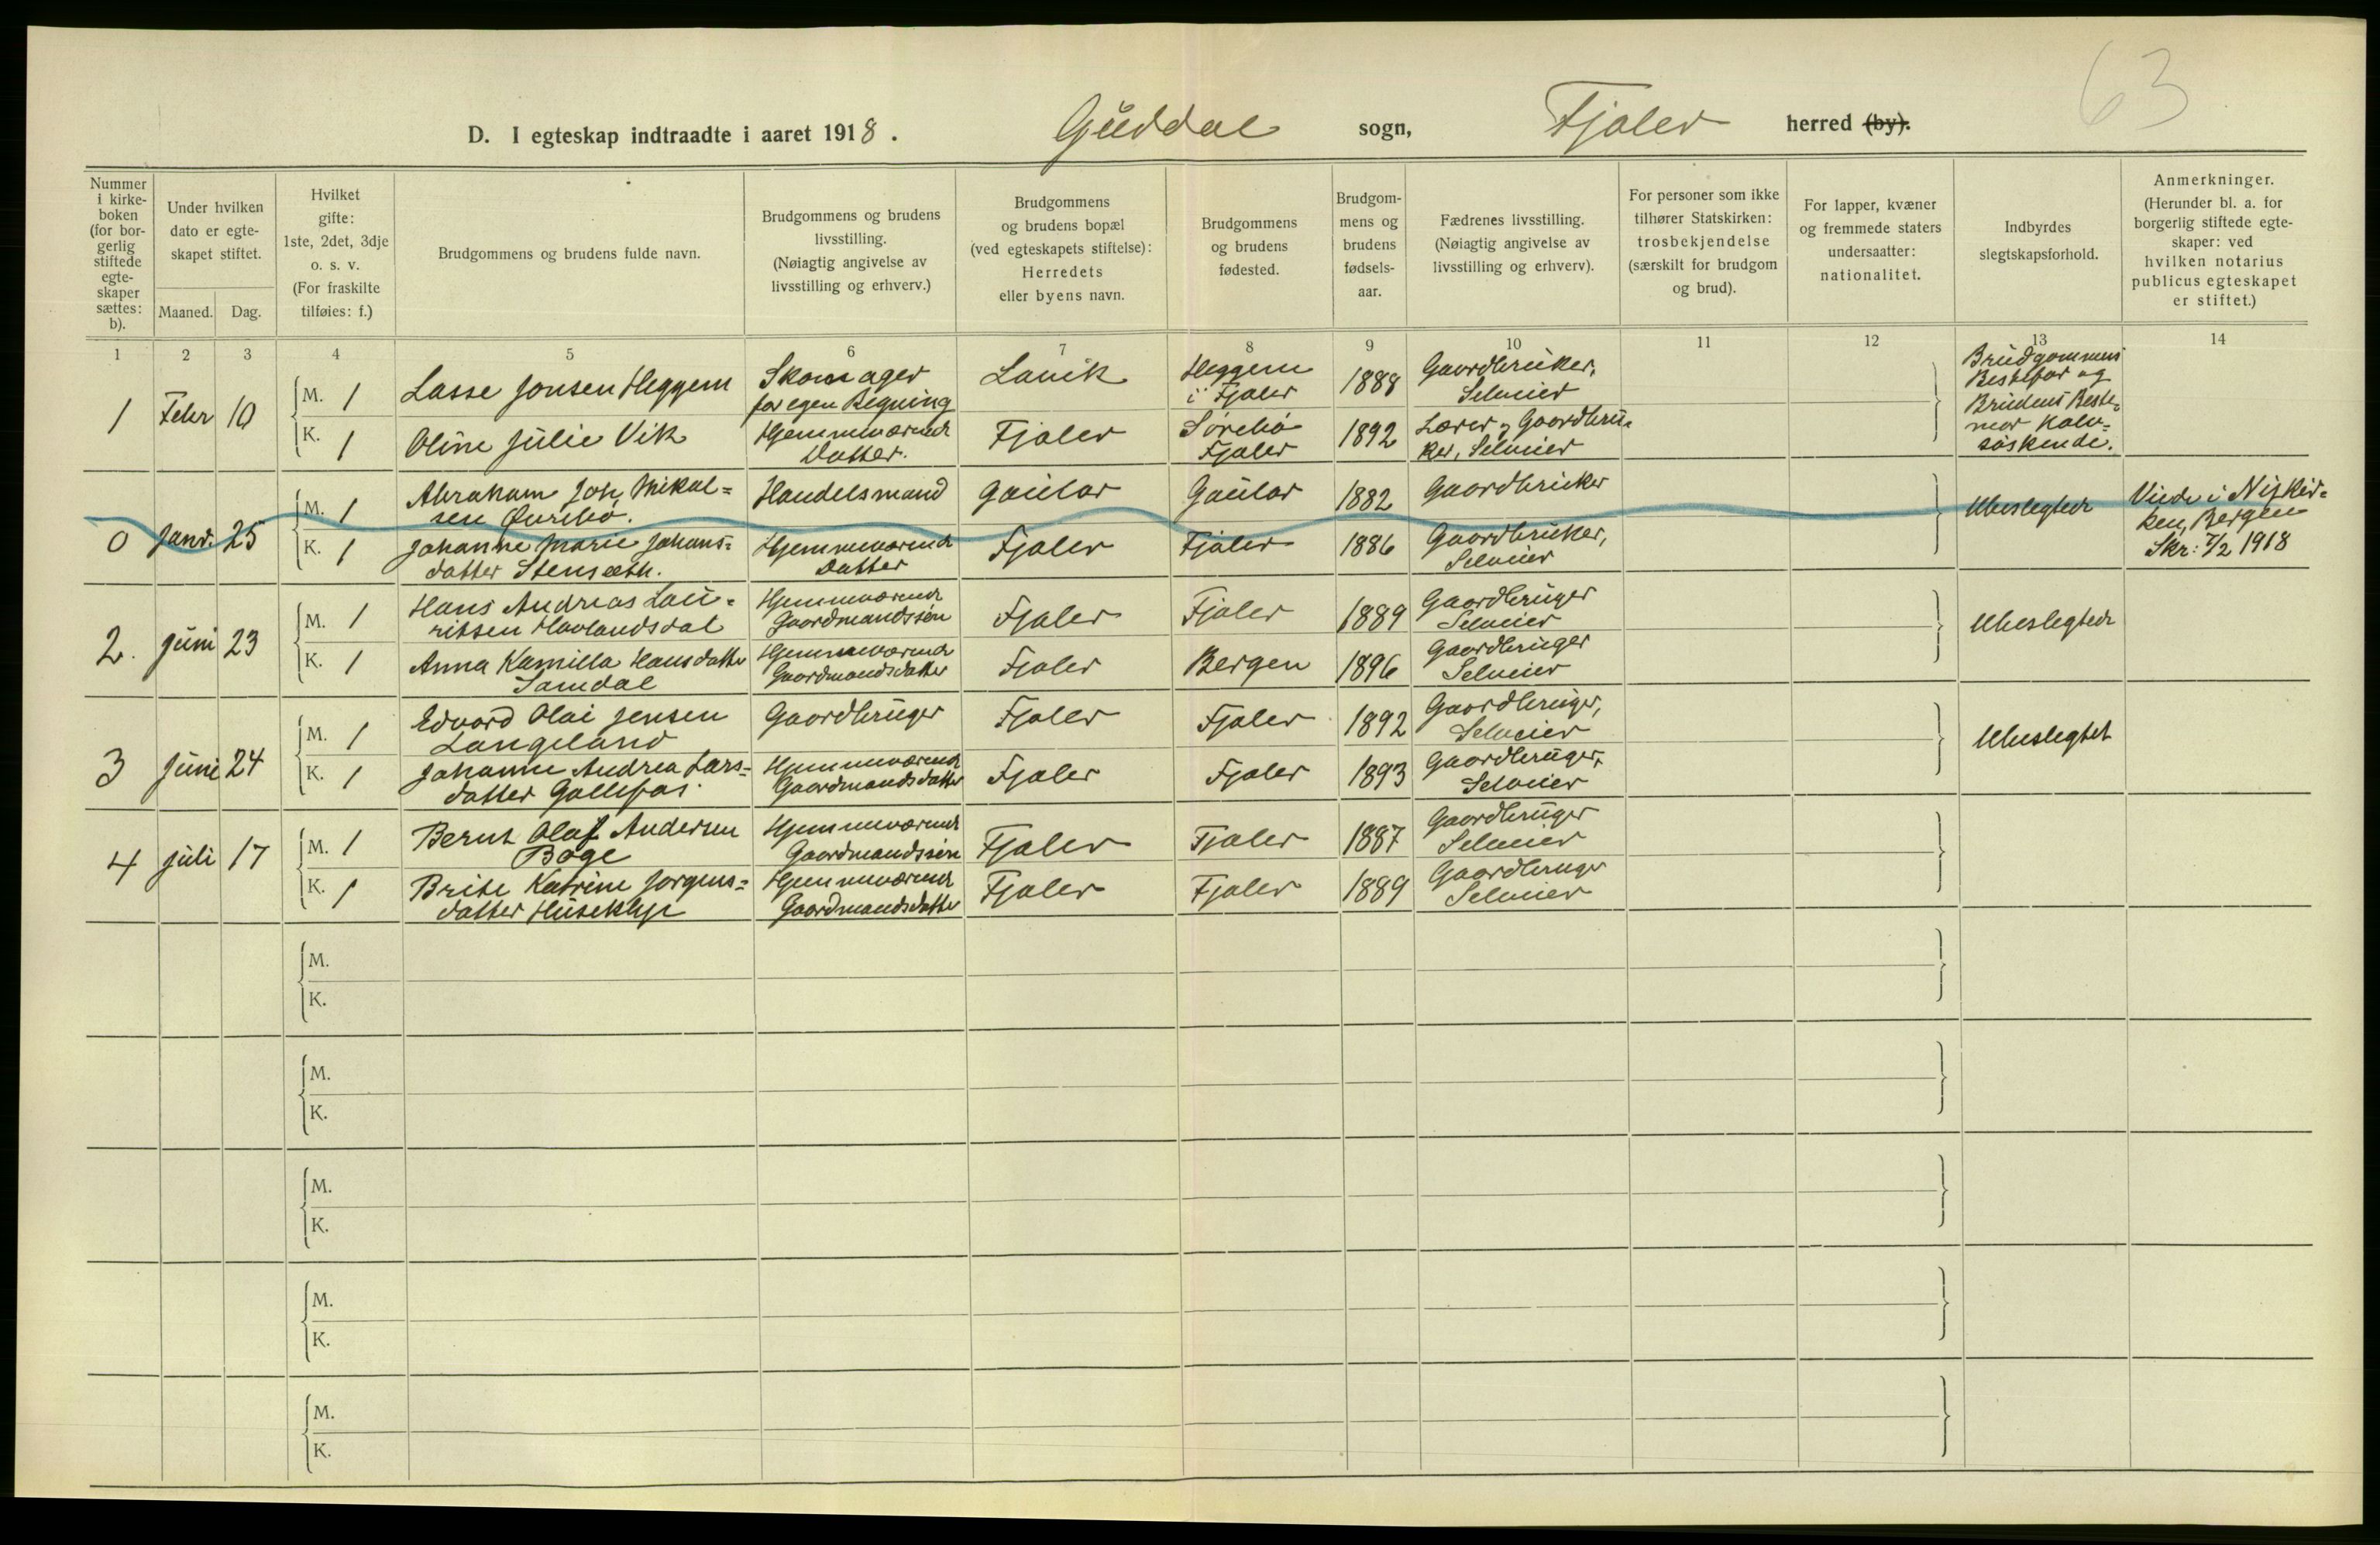 63
D. I egteskap indtraadte i aaret 1918. Guddal sogn, Fjaler herred (by).
Nummer i kirke-boken (for bor-gerlig stiftede egte-skaper sættes: b).
Under hvilken dato er egte-skapet stiftet.
Maaned. Dag.
Hvilket gifte: 1ste, 2det, 3dje o. s. v. (For fraskilte tilføies: f.)
Brudgommens og brudens fulde navn.
Brudgommens og brudens livsstilling. (Nøiagtig angivelse av livsstilling og erhverv.)
Brudgommens og brudens bopæl (ved egteskapets stiftelse): Herredets eller byens navn.
Brudgommens og brudens fødested.
Brudgom-mens og brudens fødsels-aar.
Fædrenes livsstilling. (Nøiagtig angivelse av livsstilling og erhverv).
For personer som ikke tilhører Statskirken: trosbekjendelse (særskilt for brudgom og brud).
For lapper, kvæner og fremmede staters undersaatter: nationalitet.
Indbyrdes slegtskapsforhold.
Anmerkninger. (Herunder bl. a. for borgerlig stiftede egte-skaper: ved hvilken notarius publicus egteskapet er stiftet.)
1 2 3 4 5 6 7 8 9 10 11 12 13 14
1 Febr 10
M. 1 Lasse Jonsen Heggem Skomager for egen Regning Lavik Heggem i Fjaler 1888 Gaardbruker, Selveier
K. 1 Oline Julie Vik Hjemmeværende Datter. Fjaler Sørebø Fjaler 1892 Lærer og Gaardbru-ker, Selveier
Brudgommens Bestefar og Brudens Beste-mor Halv-søskende.
0 Janr. 25
M. 1 Abraham Joh. Mikal=sen Øvrebø. Handelsmand Gaular Gaular 1882 Gaardbruker
K. 1 Johanne Marie Johans=datter Stensæth. Hjemmeværende Datter Fjaler Fjaler 1886 Gaardbruker, Selveier
Ubeslegtede
Viede i Nykir=ken, Bergen Skr: 7/2 1918
2. Juni 23
M. 1 Hans Andreas Lau=ritsen Havlandsdal Hjemmeværende Gaardmandssøn Fjaler Fjaler 1889 Gaardbruger Selveier
K. 1 Anna Kamilla Hansdatter Samdal Hjemmeværende Gaardmandsdatter Fjaler Bergen 1896 Gaardbruger Selveier
Ubeslegtede
3 Juni 24
M. 1 Edvard Olai Jensen Langeland Gaardbruger Fjaler Fjaler 1892 Gaardbruger, Selveier
K. 1 Johanne Andrea Lars=datter Gallefos. Hjemmeværende Gaardmandsdatter Fjaler Fjaler 1893 Gaardbruger, Selveier
Ubeslegtet
4 Juli 17
M. 1 Bernt Olaf Andersen Bøge Hjemmeværende Gaardmandssøn Fjaler Fjaler 1887 Gaardbruger Selveier
K. 1 Brite Katrine Jørgens=datter Huseklep Hjemmeværende Gaardmandsdatter Fjaler Fjaler 1889 Gaardbruger Selveier
M.
K.
M.
K.
M.
K.
M.
K.
M.
K.